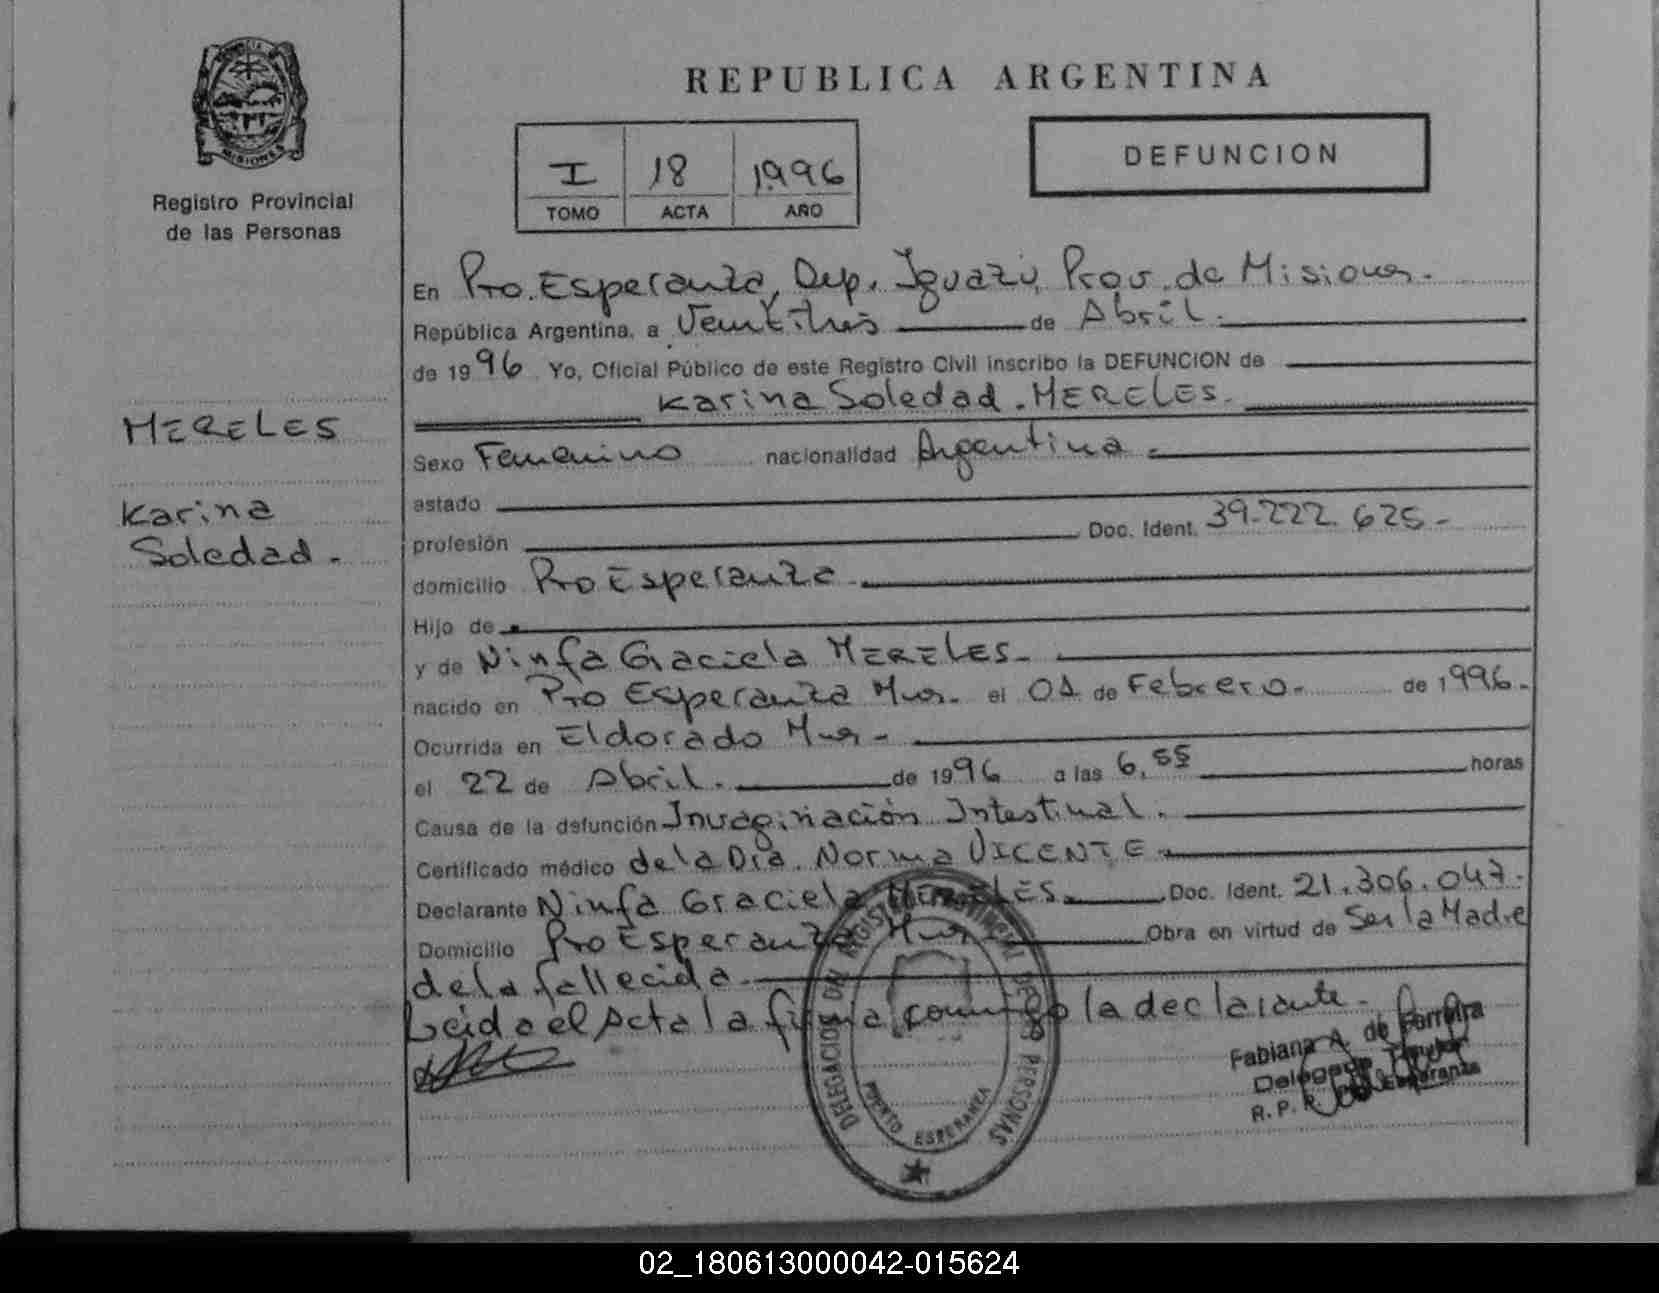 MISIONES
Registro Provincial
de las Personas
MERELES
Karina
Soledad.
REPUBLICA ARGENTINA
I 18 1996
TOMO ACTA AÑO
DEFUNCION
En Pto. Esperanza, Dep. Iguazú, Prov. de Misiones.
República Argentina, a Veintitrés de Abril.
de 1996 Yo, Oficial Público de este Registro Civil inscribo la DEFUNCION de
Karina Soledad. MERELES.
Sexo Femenino nacionalidad Argentina.
estado
profesión Doc. Ident. 39.222.625-
domicilio Pto Esperanza
Hijo de
y de Ninfa Graciela MERELES-
nacido en Pto Esperanza Mnes. el 01 de Febrero.- de 1996.-
Ocurrida en Eldorado Mnes-
el 22 de Abril. de 1996 a las 6,55 horas
Causa de la defunción Invaginación Intestinal.
Certificado médico de la Dra. Norma VICENTE-
Declarante Ninfa Graciela MERELES. Doc. Ident. 21.306.047-
Domicilio Pto Esperanza Mnes Obra en virtud de Ser la Madre
de la fallecida.
Leida el Acta la firma conmigo la declarante-
DELEGACION REGISTRO PROVINCIAL DE LAS PERSONAS
PUERTO ESPERANZA
Fabiana A. de Ferreira
Delegada Titular
R. P. Esperanza
02_180613000042-015624